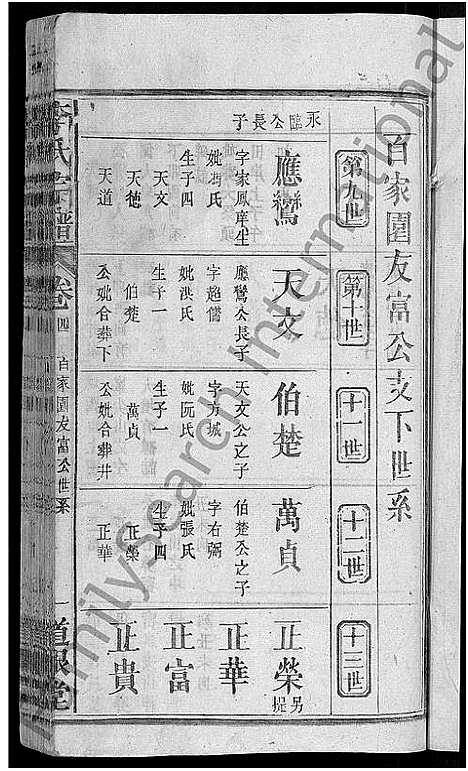 百家園友富公支下世系
第九世
第十世
十一世
十二世
十三世
永臨公長子
應鸞
字家鳳庠生
妣馮氏
生子四
天文
天德
天道
天文
應鸞公長子
字超儒
妣洪氏
生子一
伯楚
公妣合葬下
伯楚
天文公之子
字方城
妣阮氏
生子一
萬貞
公妣合葬井
萬貞
伯楚公之子
字右弼
妣張氏
生子四
正榮
正華
正榮 另提
正華
正富
正貴
李氏宗譜
卷四
百家園友富公世系
一
道根堂
FamilySearch International